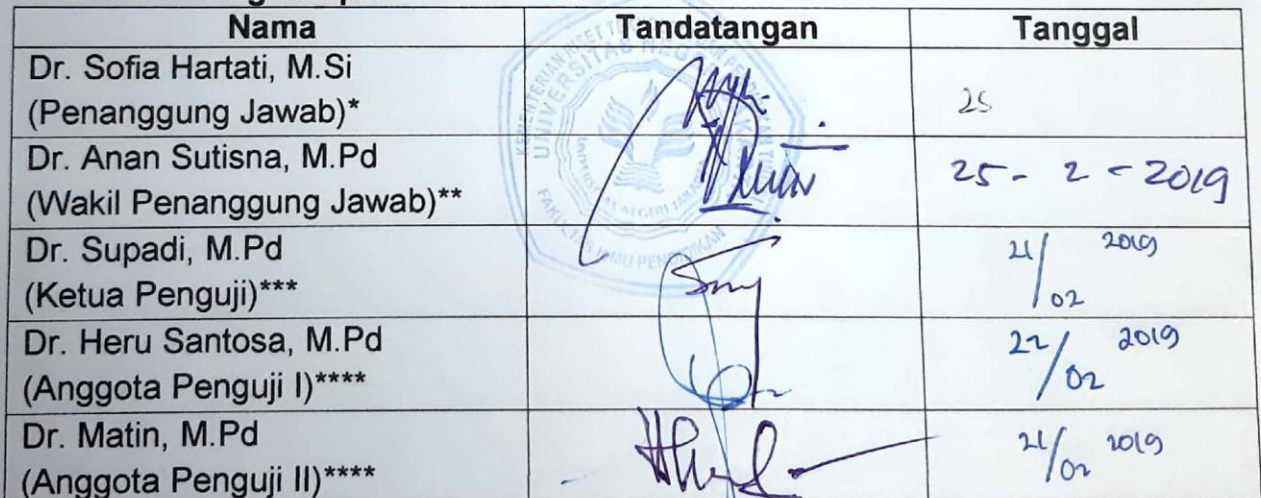 Nama Tandatangan Tanggal
Dr. Sofia Hartati, M.Si
(Penanggung Jawab)* 25
Dr. Anan Sutisna, M.Pd
(Wakil Penanggung Jawab)** 25 - 2 - 2019
Dr. Supadi, M.Pd
(Ketua Penguji)*** 21/02 2019
Dr. Heru Santosa, M.Pd
(Anggota Penguji I)**** 22/02 2019
Dr. Matin, M.Pd
(Anggota Penguji II)**** 21/02 2019
UNIVERSITAS NEGERI
FAKULTAS ILMU PENDIDIKAN